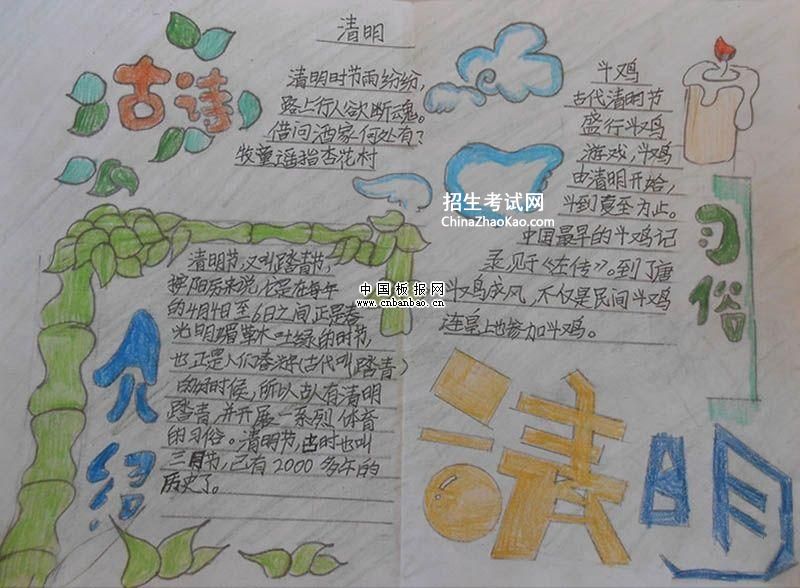 清明
古诗
清明时节雨纷纷,
路上行人欲断魂。
借问酒家何处有?
牧童遥指杏花村
斗鸡
古代清明节
盛行斗鸡
游戏,斗鸡
由清明开始,
斗到夏至为止。
中国最早的斗鸡记
录见于《左传》。到了唐
斗鸡成风,不仅是民间斗鸡
连皇上也参加斗鸡。
习俗
招生考试网
ChinaZhaoKao.com
介绍
清明节,又叫踏青节,
按阳历来说,它是在每年
的4月4日至6日之间正是春
光明媚草木吐绿的时节,
也正是人们春游(古代叫踏青)
的好时候,所以古人有清明
踏青,并开展一系列体育
的习俗。清明节,古时也叫
三月节,已有2000多年的
历史了。
中国板报网
www.cnbanbao.cn
清明